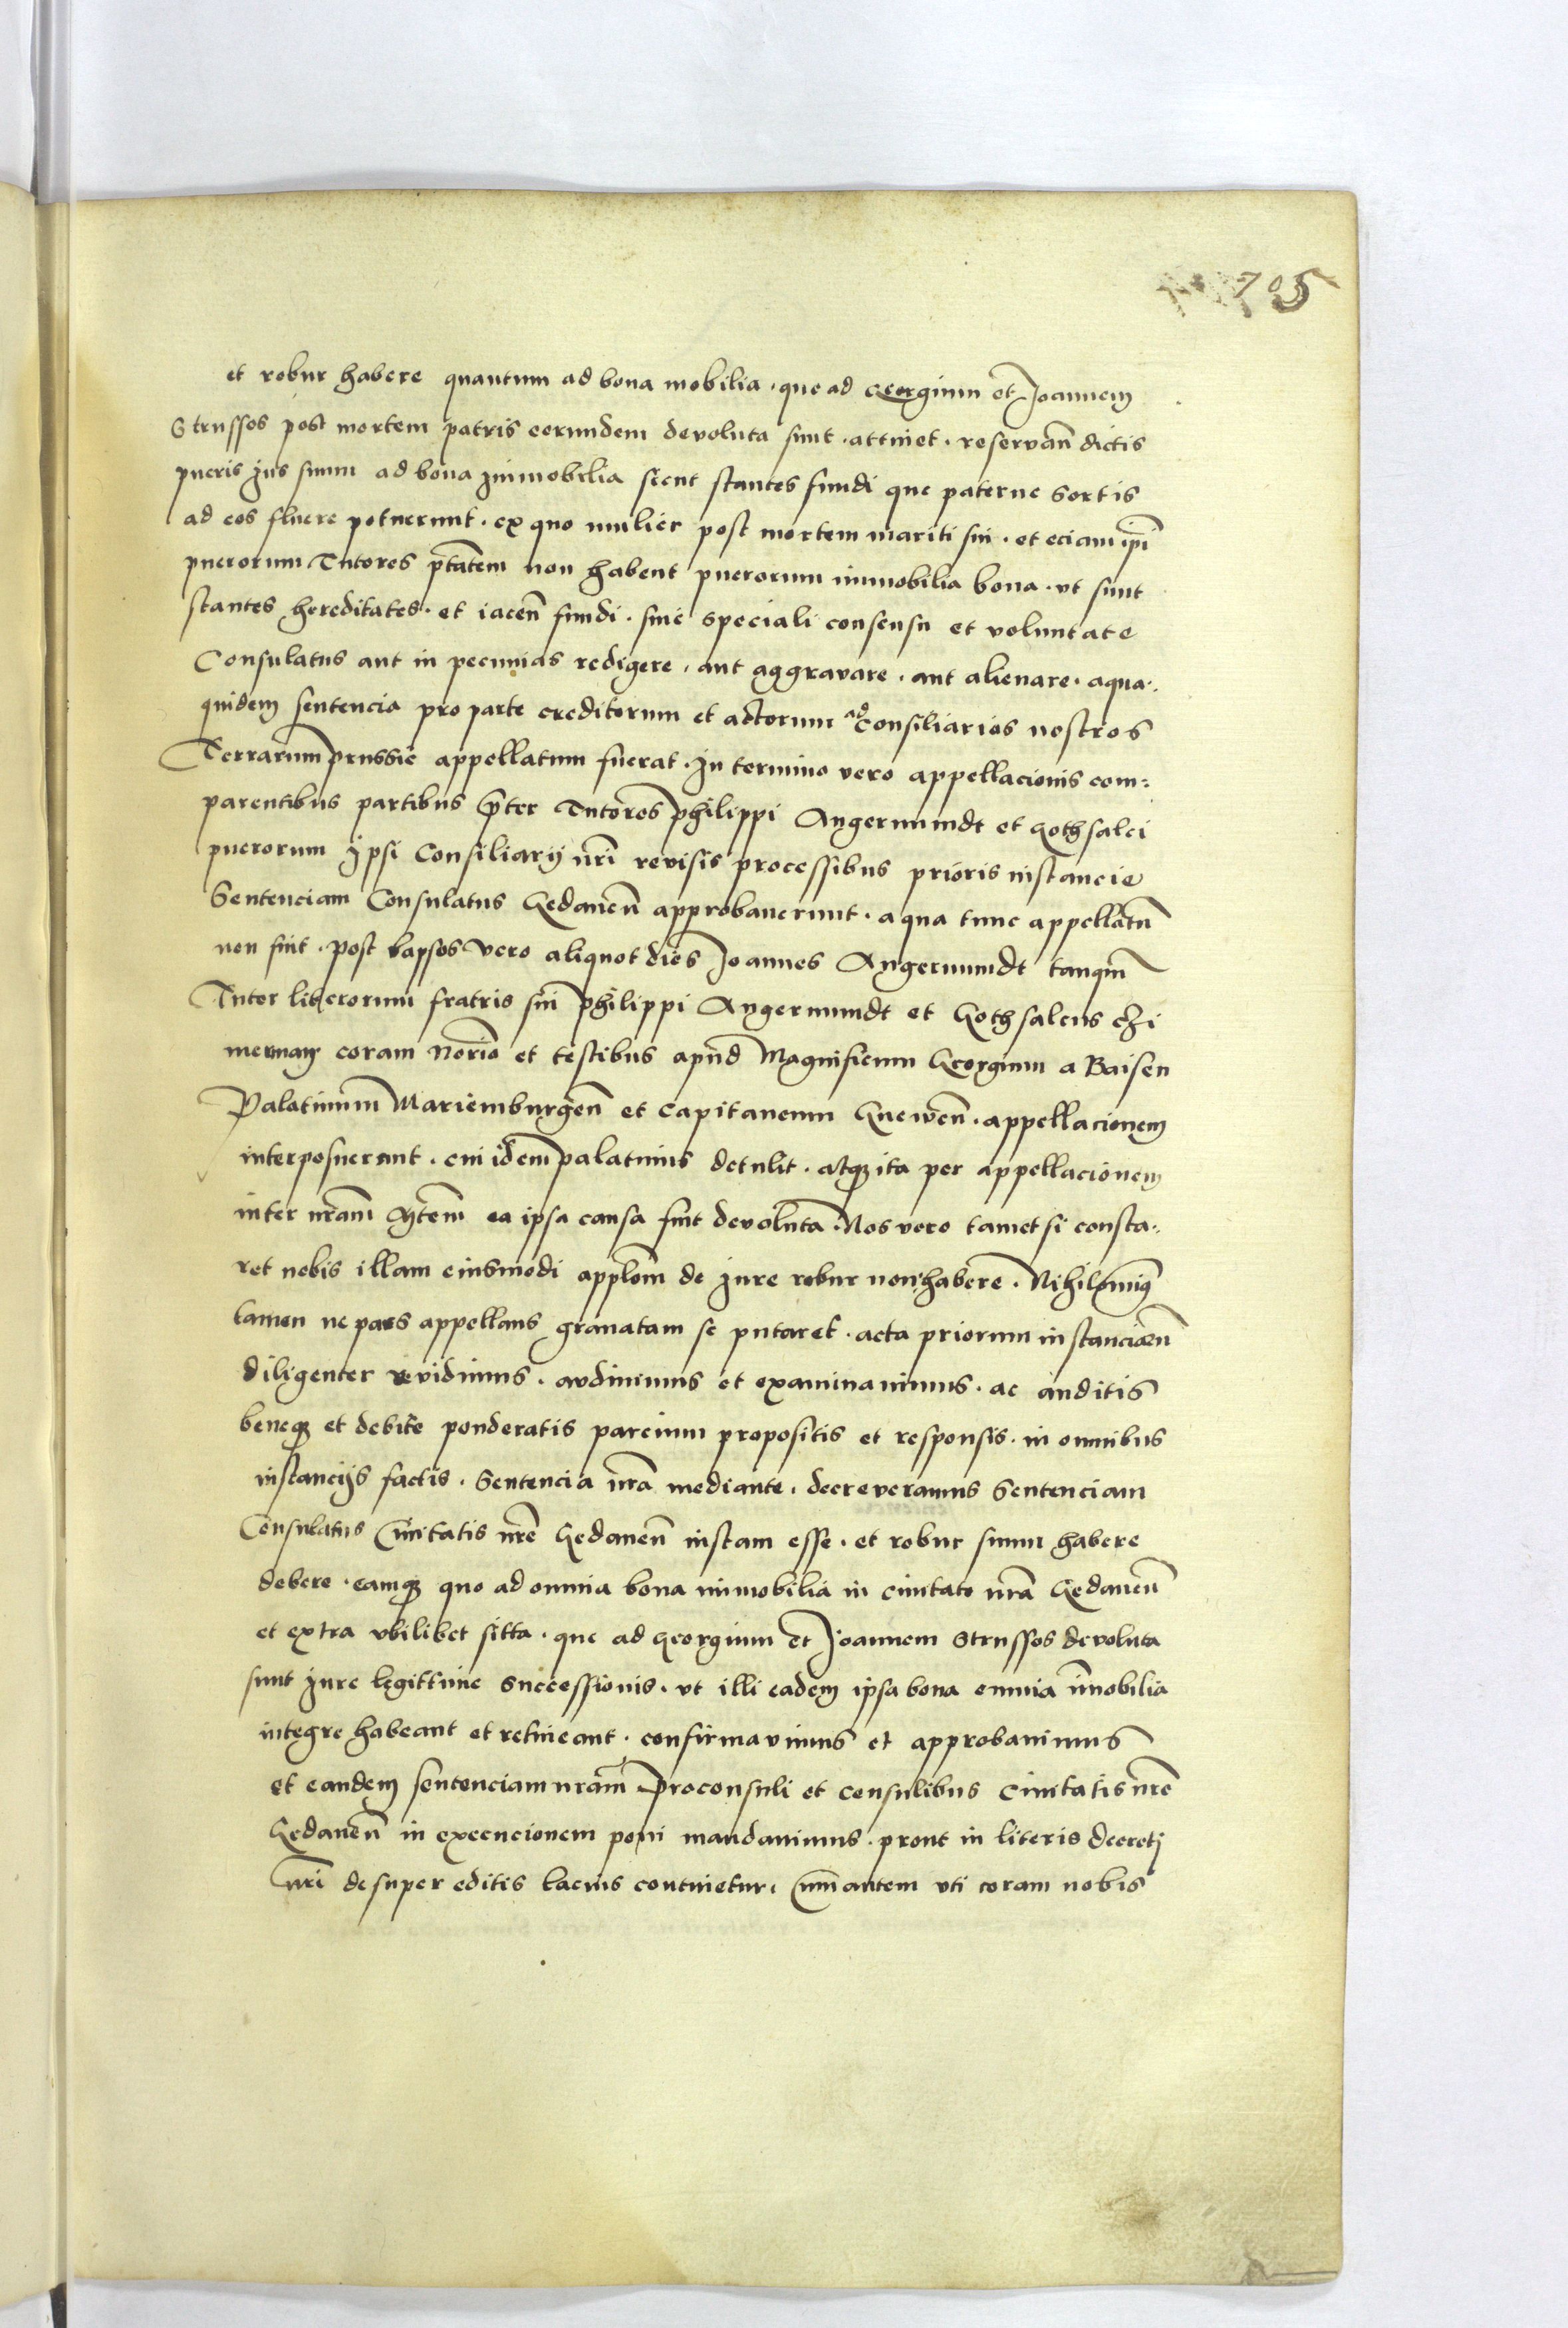 705
et robur habere quantum ad bona mobilia . que ad Georgium et Joannem
Strussos post mortem patris eorundem devoluta sunt . attinet . reservan̄ dictis
pueris jus suum ad bona jmmobilia sicut stantes fundi que paterne sortis
ad eos fluere potuerunt . ex quo mulier post mortem mariti sui . et eciam ip̄i
puerorum Tutores p̄tatem non habent puerorum immobilia bona . vt sunt
stantes hereditates . et iacen̄ fundi . sine speciali consensu et voluntate
Consulatus aut in pecunias redigere . aut aggravare . aut alienare . aqua⸗
quidem sentencia pro parte creditorum et actorum ad Consiliarios nostros
Terrarum prussie appellatum fuerat . Jn termino vero appellacionis com⸗
parentibus partibus p̄ter Tutores philippi Angermundt et Gothsalci
puerorum Jpsi Consiliarij nr̄i revisis processibus prioris instancie
Sentenciam Consulatus Gedanen̄ approbaverunt . a qua tunc appellatū
non fuit . post lapsos vero aliquot dies Joannes Angermundt tanqm̄
Tutor liberorum fratris sui philippi Angermundt et Gothsalcus czi
merman coram nor̄io et testibus apud Magnificum Georgium a Baisen
Palatinum Mariemburgen̄ et capitaneum Gnewen̄ . appellacionem
interposuerunt . cui idem palatinus detulit . atqꝫ ita per appellacionem
inter nr̄am Mtēm ea ipsa causa fuit devoluta . Nos vero tametsi consta⸗
ret nobis illam eiusmodi applōm de jure robur non habere . Nihilominꝰ
tamen ne pars appellans gravatam se putaret . acta priorum instanciarū
diligenter revidimus . audivimus et examinavimus . ac auditis
beneqꝫ et debite ponderatis parcium propositis et responsis . in omnibus
instancijs factis . Sentencia nr̄a mediante . decreveramus Sentenciam
Consulatus Civitatis nr̄e Gedanen̄ iustam esse . et robur suum habere
debere . eamqꝫ quo ad omnia bona immobilia in civitate nr̄a Gedanen̄
et extra vbilibet sitta . que ad Georgium et Joannem Strussos devoluta
sunt jure legittime successionis . vt illi eadem ipsa bona omnia im̄obilia
integre habeant et retineant . confirmavimus et approbavimus
et eandem sentenciam nr̄am Proconsuli et consulibus Civitatis nr̄e
Gedanen̄ in execucionem poni mandavimus . prout in literis decreti
nr̄i desuper editis lacius continetur . Cum autem vti coram nobis